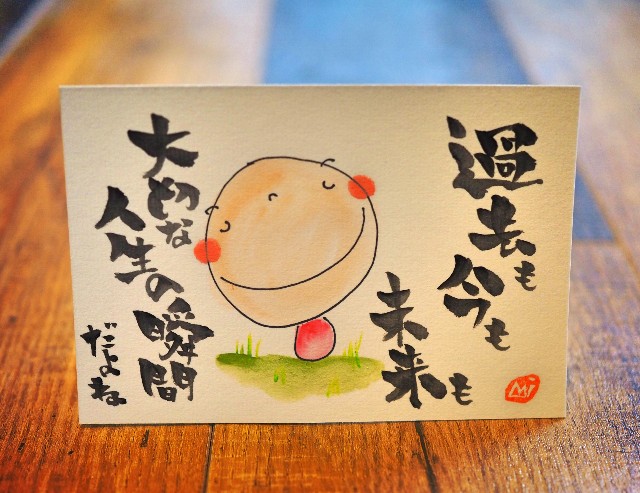 過去も
今も
未来も
大切な
人生の瞬間
だよね
Mi